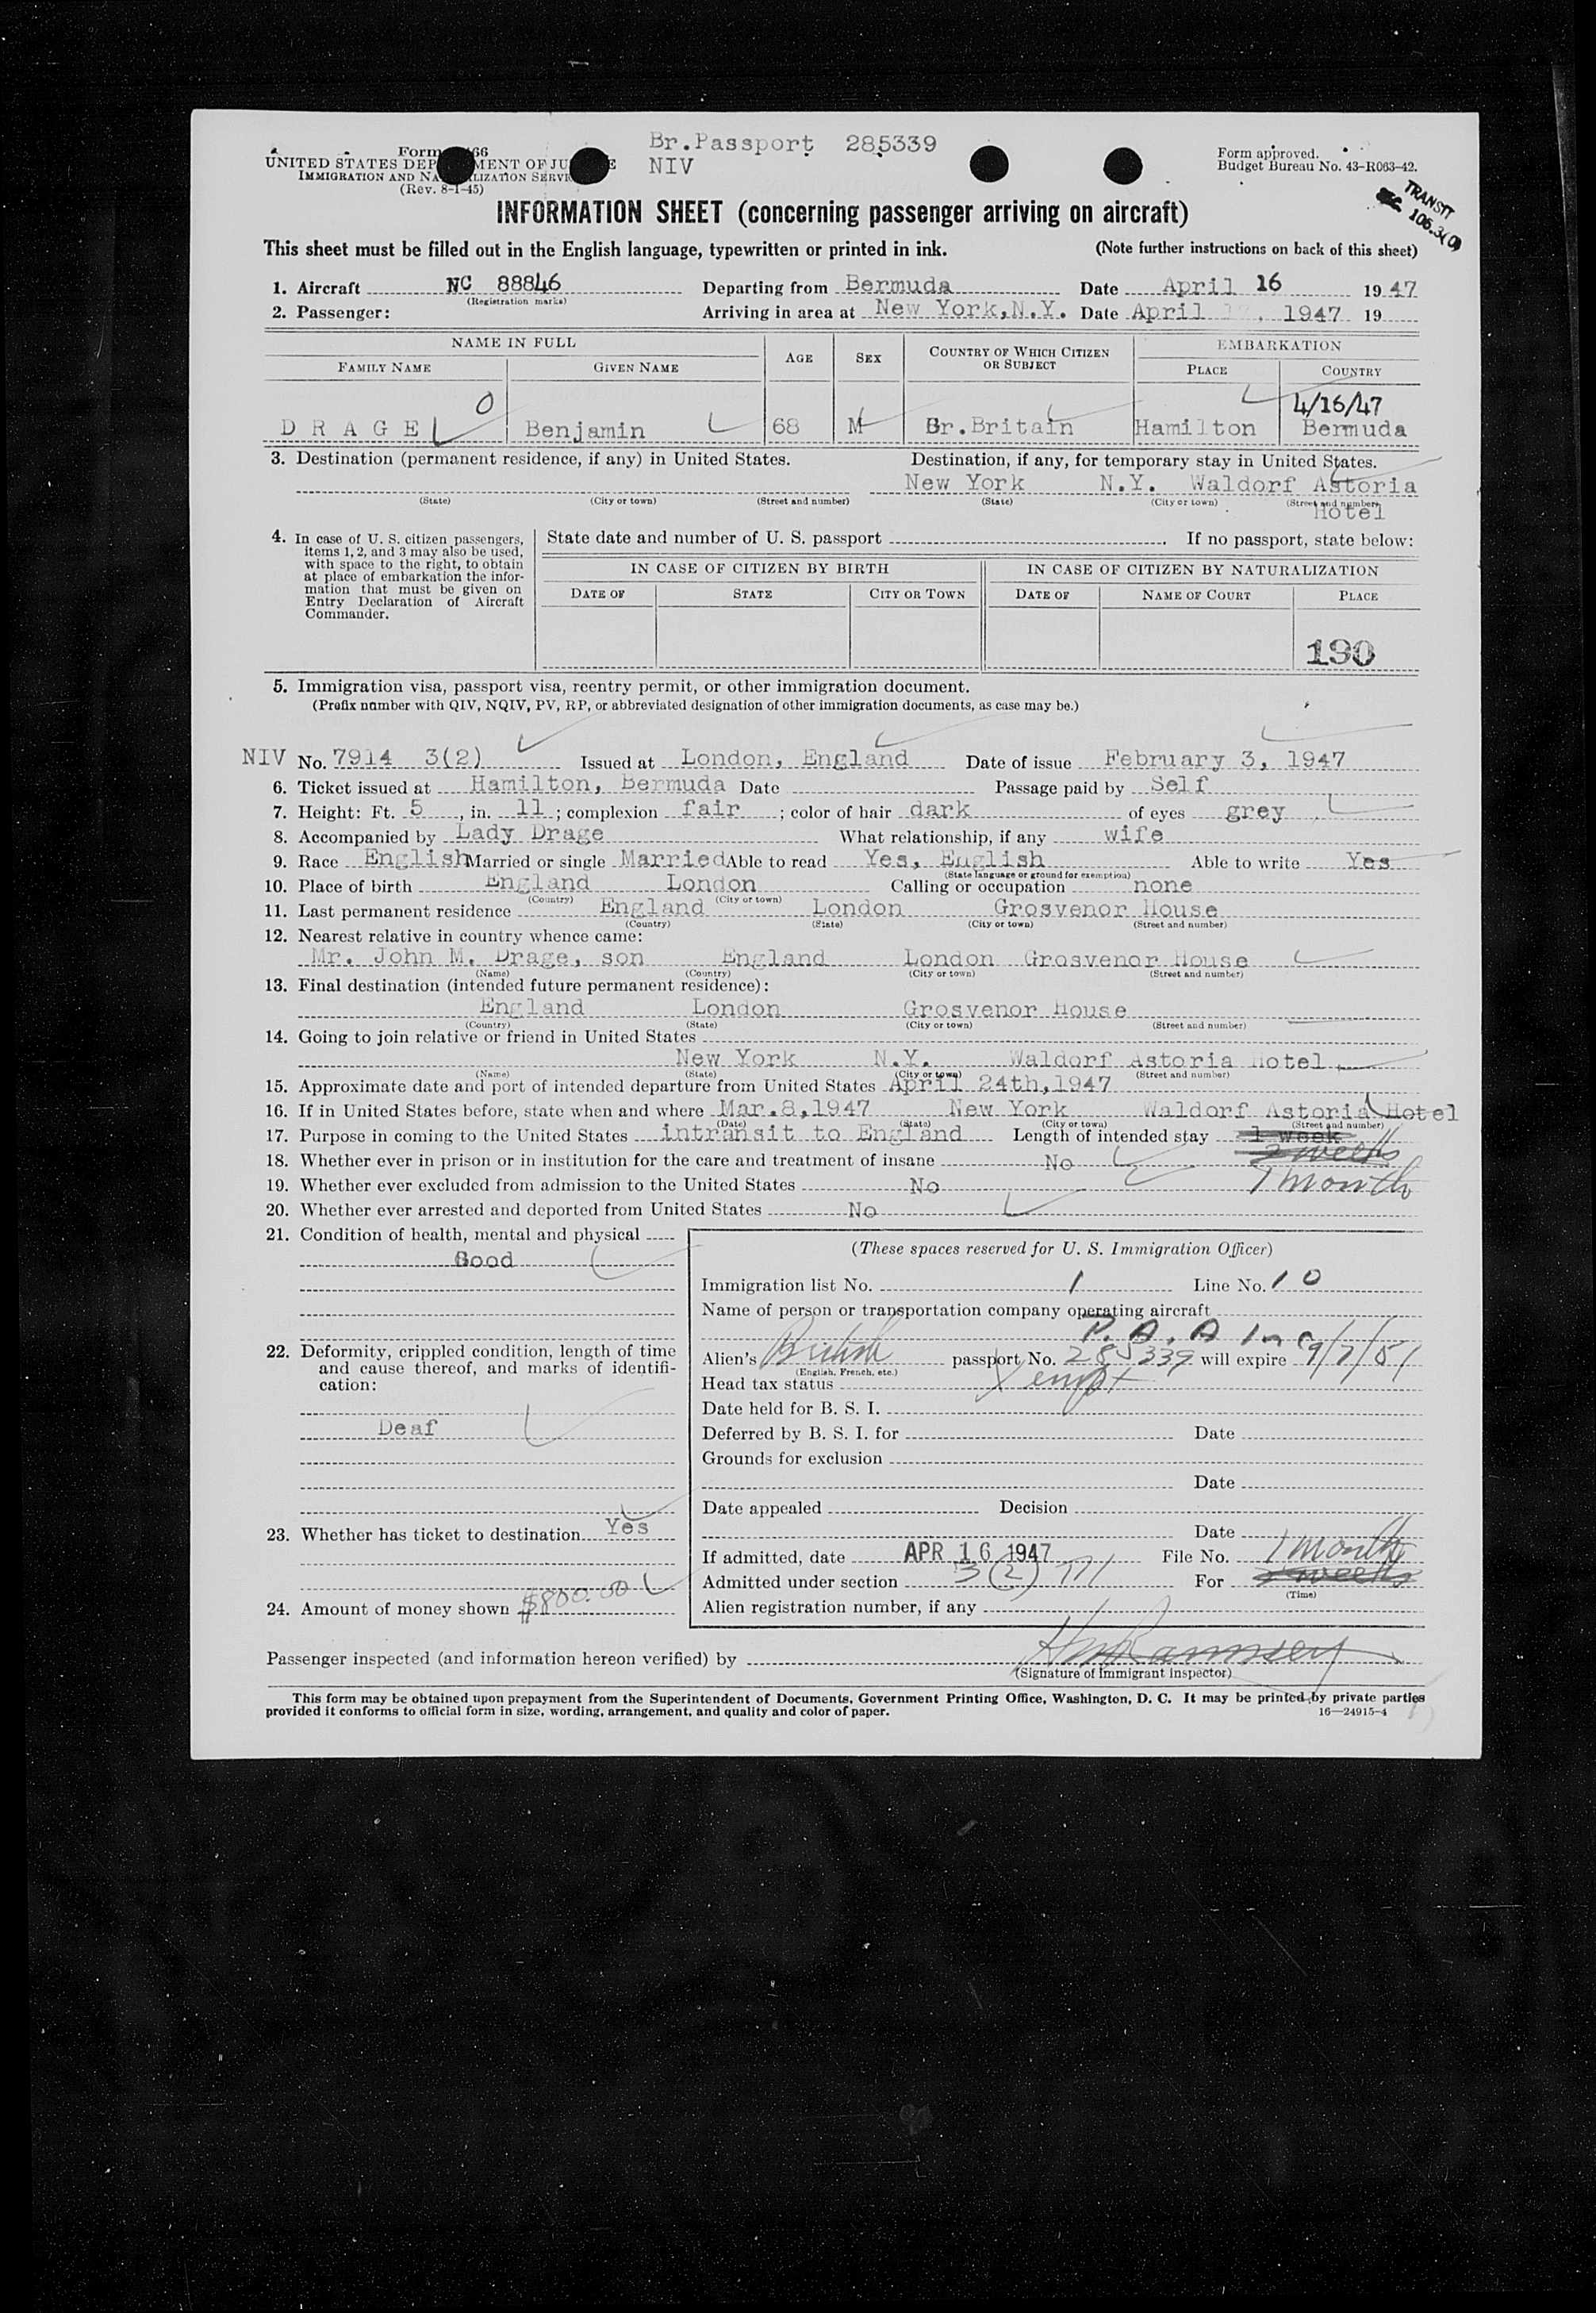 Br.Passport 285339
NIV
Form 66
UNITED STATES DEP MENT OF JU E
IMMIGRATION AND NA LIZATION SERV
(Rev. 8-1-45)
Form approved.
Budget Bureau No. 43-R063-42.
TRANSIT
SEC. 106.3(0)
INFORMATION SHEET (concerning passenger arriving on aircraft)
This sheet must be filled out in the English language, typewritten or printed in ink. (Note further instructions on back of this sheet)
1. Aircraft NC 88846 Departing from Bermuda Date April 16 1947
(Registration marks)
2. Passenger: Arriving in area at New York, N.Y. Date April . 1947 19
NAME IN FULL AGE SEX COUNTRY OF WHICH CITIZEN OR SUBJECT EMBARKATION
FAMILY NAME GIVEN NAME PLACE COUNTRY
0 4/16/47
D R A G E Benjamin 68 M Gr.Britain Hamilton Bermuda
3. Destination (permanent residence, if any) in United States. Destination, if any, for temporary stay in United States.
New York N.Y. Waldorf Astoria
(State) (City or town) (Street and number) (State) (City or town) (Street and number)
Hotel
4. In case of U. S. citizen passengers, items 1, 2, and 3 may also be used, with space to the right, to obtain at place of embarkation the information that must be given on Entry Declaration of Aircraft Commander.
State date and number of U. S. passport . If no passport, state below:
IN CASE OF CITIZEN BY BIRTH IN CASE OF CITIZEN BY NATURALIZATION
DATE OF STATE CITY OR TOWN DATE OF NAME OF COURT PLACE
190
5. Immigration visa, passport visa, reentry permit, or other immigration document.
(Prefix number with QIV, NQIV, PV, RP, or abbreviated designation of other immigration documents, as case may be.)
NIV No. 7914 3(2) Issued at London, England Date of issue February 3, 1947
6. Ticket issued at Hamilton, Bermuda Date Passage paid by Self
7. Height: Ft. 5, in. 11; complexion fair; color of hair dark of eyes grey
8. Accompanied by Lady Drage What relationship, if any wife
9. Race English Married or single Married Able to read Yes, English Able to write Yes
(State language or ground for exemption)
10. Place of birth England London Calling or occupation none
(Country) (City or town)
11. Last permanent residence England London Grosvenor House
(Country) (State) (City or town) (Street and number)
12. Nearest relative in country whence came:
Mr. John M. Drage, son England London Grosvenor House
(Name) (Country) (City or town) (Street and number)
13. Final destination (intended future permanent residence):
England London Grosvenor House
(Country) (State) (City or town) (Street and number)
14. Going to join relative or friend in United States
New York N.Y. Waldorf Astoria Hotel
(Name) (State) (City or town) (Street and number)
15. Approximate date and port of intended departure from United States April 24th,1947
16. If in United States before, state when and where Mar.8,1947 New York Waldorf Astoria Hotel
(Date) (State) (City or town) (Street and number)
17. Purpose in coming to the United States intransit to England Length of intended stay 1 week
2 weeks
18. Whether ever in prison or in institution for the care and treatment of insane No
19. Whether ever excluded from admission to the United States No 1 month
20. Whether ever arrested and deported from United States No
21. Condition of health, mental and physical
Good
22. Deformity, crippled condition, length of time and cause thereof, and marks of identification:
Deaf
23. Whether has ticket to destination Yes
24. Amount of money shown $800.00
(These spaces reserved for U. S. Immigration Officer)
Immigration list No. 1 Line No. 10
Name of person or transportation company operating aircraft
P. A. A Inc
Alien's British passport No. 285339 will expire 9/7/51
(English, French, etc.)
Head tax status Xempt
Date held for B. S. I.
Deferred by B. S. I. for Date
Grounds for exclusion
Date
Date appealed Decision
Date
If admitted, date APR 16 1947 File No. 1 month
Admitted under section 3(2) For 2 weeks
(Time)
Alien registration number, if any
Passenger inspected (and information hereon verified) by
(Signature of Immigrant Inspector)
This form may be obtained upon prepayment from the Superintendent of Documents, Government Printing Office, Washington, D. C. It may be printed by private parties
provided it conforms to official form in size, wording, arrangement, and quality and color of paper. 16—24915-4